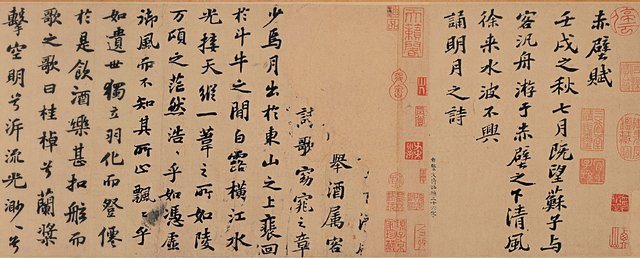 赤壁賦
壬戌之秋七月既望蘇子与
客汎舟游于赤壁之下清風
徐来水波不興
誦明月之詩
舉酒属客
歌窈窕之章
少焉月出於東山之上裵回
於斗牛之間白露横江水
光接天縱一葦之所如陵
万頃之茫然浩〻乎如憑虚
御風而不知其所止飄〻乎
如遺世獨立羽化而登僊
於是飲酒樂甚扣舷而
歌之歌曰桂棹兮蘭槳
擊空明兮泝流光渺〻兮